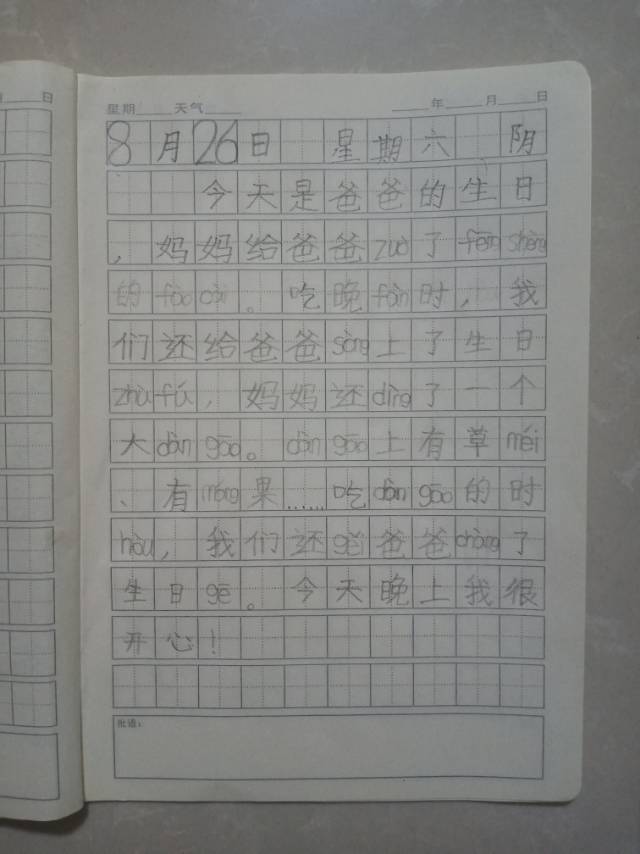 日
月 日
星期 天气 年 月 日
8月26日 星期六 阴
今天是爸爸的生日
，妈妈给爸爸zuò了fēng shèng
的fào cài。吃晚fàn时，我
们还给爸爸sòng上了生日
zhù fú，妈妈还dìng了一个
大dàn gāo。dàn gāo上有草méi
、有máng果……吃dàn gāo的时
hòu，我们还gěi爸爸chàng了
生日gē。今天晚上我很
开心！
批语：